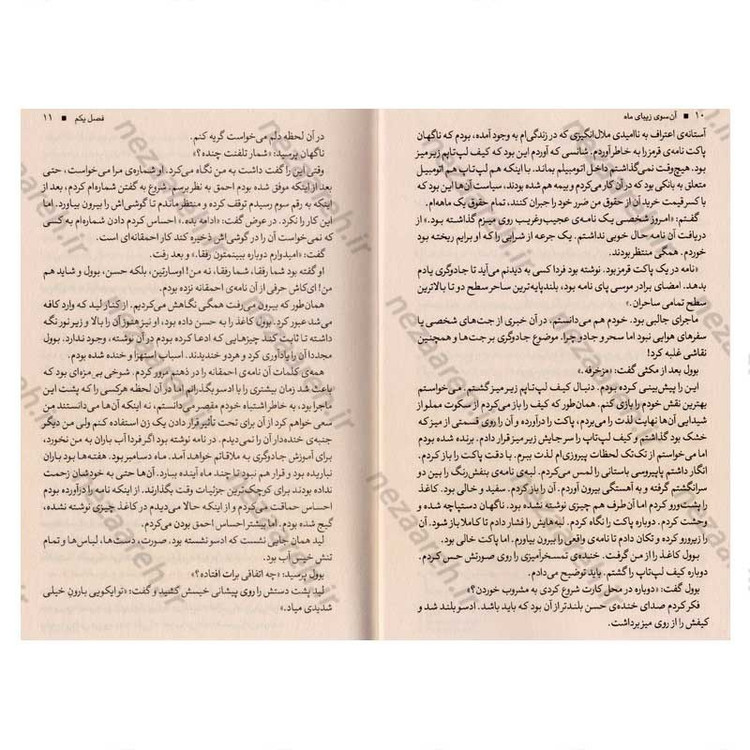 ۱۰ ■ آن‌سوی زیبای ماه
آستانه‌ی اعتراف به ناامیدی ملال‌انگیزی که در زندگی‌ام به وجود آمده، بودم که ناگهان
پاکت نامه‌ی قرمز را به خاطر آوردم. شانسی که آوردم این بود که کیف لپ‌تاپم زیر میز
بود. هیچ‌وقت نمی‌گذاشتم داخل اتومبیلم بماند. با اینکه هم لپ‌تاپ هم اتومبیل
متعلق به بانکی بود که در آن کار می‌کردم و بیمه هم شده بودند، سیاست آن‌ها این بود که
با کسر قیمت خرید آن از حقوق من ضرر خود را جبران کنند، تمام حقوق یک ماهم.
گفتم: «امروز شخصی یک نامه‌ی عجیب‌وغریب روی میزم گذاشته بود.» از
دریافت آن نامه حال خوبی نداشتم. یک جرعه از شرابی را که او برایم ریخته بود
خوردم. همگی منتظر بودند.
«نامه در یک پاکت قرمز بود. نوشته بود فردا کسی به دیدنم می‌آید تا جادوگری یادم
بدهد. امضای برادر موسی پای نامه بود، بلندپایه‌ترین ساحر سطح دو تا بالاترین
سطح تمامی ساحران.»
ماجرای جالبی بود. خودم هم می‌دانستم. در آن خبری از جت‌های شخصی یا
سفرهای هوایی نبود اما سحر و جادو چرا. موضوع جادوگری بر جت‌ها و همچنین
نقاشی غلبه کرد!
بوول بعد از مکثی گفت: «مزخرفه.»
این را پیش‌بینی کرده بودم. دنبال کیف لپ‌تاپم زیر میز گشتم. می‌خواستم
بهترین نقش خودم را بازی کنم. همان‌طور که کیف را باز می‌کردم از سکوت مملو از
شیدایی آن‌ها نهایت لذت را می‌بردم، پاکت را درآورده و آن را روی قسمتی از میز که
خشک بود گذاشتم و کیف لپ‌تاپ را سر جایش زیر میز قرار دادم. برنده شده بودم
اما می‌خواستم از تک‌تک لحظات پیروزی‌ام لذت ببرم. با دقت پاکت را باز کردم.
انگار داشتم پاپیروسی باستانی را لمس می‌کردم. لبه‌ی نامه‌ی بنفش‌رنگ را بین دو
سرانگشتم گرفته و به آهستگی بیرون آوردم. آن را باز کردم. سفید و خالی بود. کاغذ
را پشت‌ورو کردم اما آن‌طرف هم چیزی نوشته نشده بود. ناگهان دستپاچه شده و
وحشت کردم. دوباره پاکت را نگاه کردم. لبه‌هایش را فشار دادم تا کاملا باز شود. آن
را زیرورو کرده و تکان دادم تا نامه‌ی واقعی را بیرون بیاورم. اما پاکت خالی بود.
بوول کاغذ را از من گرفت. خنده‌ی تمسخرآمیزی را روی صورتش حس کردم.
دوباره کیف لپ‌تاپ را گشتم. باید توضیح می‌دادم.
بوول گفت: «دوباره در محل کارت شروع کردی به مشروب خوردن؟»
فکر کردم صدای خنده‌ی حسن بلندتر از آن بود که باید باشد. ادسو بلند شد و
کیفش را از روی میز برداشت.
فصل یکم ■ ۱۱
در آن لحظه دلم می‌خواست گریه کنم.
ناگهان پرسید: «شمار تلفنت چنده؟»
وقتی این را گفت داشت به من نگاه می‌کرد. او شماره‌ی مرا می‌خواست، حتی
بعد از اینکه موفق شده بودم احمق به نظر برسم. شروع به گفتن شماره‌ام کردم، بعد از
اینکه به رقم سوم رسیدم توقف کرده و منتظر ماندم تا گوشی‌اش را بیرون بیاورد. اما
این کار را نکرد. در عوض گفت: «ادامه بده.» احساس کردم دادن شماره‌ام به کسی
که نمی‌خواست آن را در گوشی‌اش ذخیره کند کار احمقانه‌ای است.
گفت: «امیدوارم دوباره ببینمتون رفقا.» و بعد رفت.
او گفته بود شما رفقا، شما رفقا، نه من! اوسارتین، بلکه حسن، بوول و شاید هم
من! ای‌کاش حرفی از آن نامه‌ی احمقانه نزده بودم.
همان‌طور که بیرون می‌رفت همگی نگاهش می‌کردیم. از کنار لید که وارد کافه
می‌شد عبور کرد. بوول کاغذ را به حسن داده بود، او نیز هنوز آن را بالا و زیر نور نگه
داشته تا ثابت کند چیزهایی که ادعا کرده بودم در آن نوشته، وجود ندارد. بوول
مجددا آن را یادآوری کرد و هردو خندیدند. اسباب استهزا و خنده شده بودم.
همه‌ی کلمات آن نامه‌ی احمقانه را در ذهنم مرور کردم. شوخی بی‌مزه‌ای بود که
باعث شد زمان بیشتری را با ادسو بگذرانم اما در آن لحظه هرکسی را که پشت این
ماجرا بود، به خاطر اشتباه خودم مقصر می‌دانستم، نه اینکه آن‌ها می‌دانستند من
سعی خواهم کرد از آن برای تحت تأثیر قرار دادن یک زن استفاده کنم ولی من دیگر
جنبه‌ی خنده‌دار آن را نمی‌دیدم. در نامه نوشته بود اگر فردا آب باران به من نخورد،
برای آموزش جادوگری به ملاقاتم خواهد آمد. ماه دسامبر بود. هفته‌ها بود باران
نباریده بود و قرار هم نبود تا چند ماه آینده ببارد. آن‌ها حتی به خودشان زحمت
نداده بودند برای کوچک‌ترین جزئیات وقت بگذارند. از اینکه نامه را درآورده بودم
احساس حماقت می‌کردم و از اینکه حالا می‌دیدم در کاغذ چیزی نوشته نشده،
گیج شده بودم. اما بیشتر احساس احمق بودن می‌کردم.
لید همان جایی نشست که ادسو نشسته بود. صورت، دست‌ها، لباس‌ها و تمام
تنش خیس آب بود.
بوول پرسید: «چه اتفاقی برات افتاده؟»
لید پشت دستش را روی پیشانی خیسش کشید و گفت: «توایکویی بارون خیلی
شدیدی میاد.»
nezaareh.ir